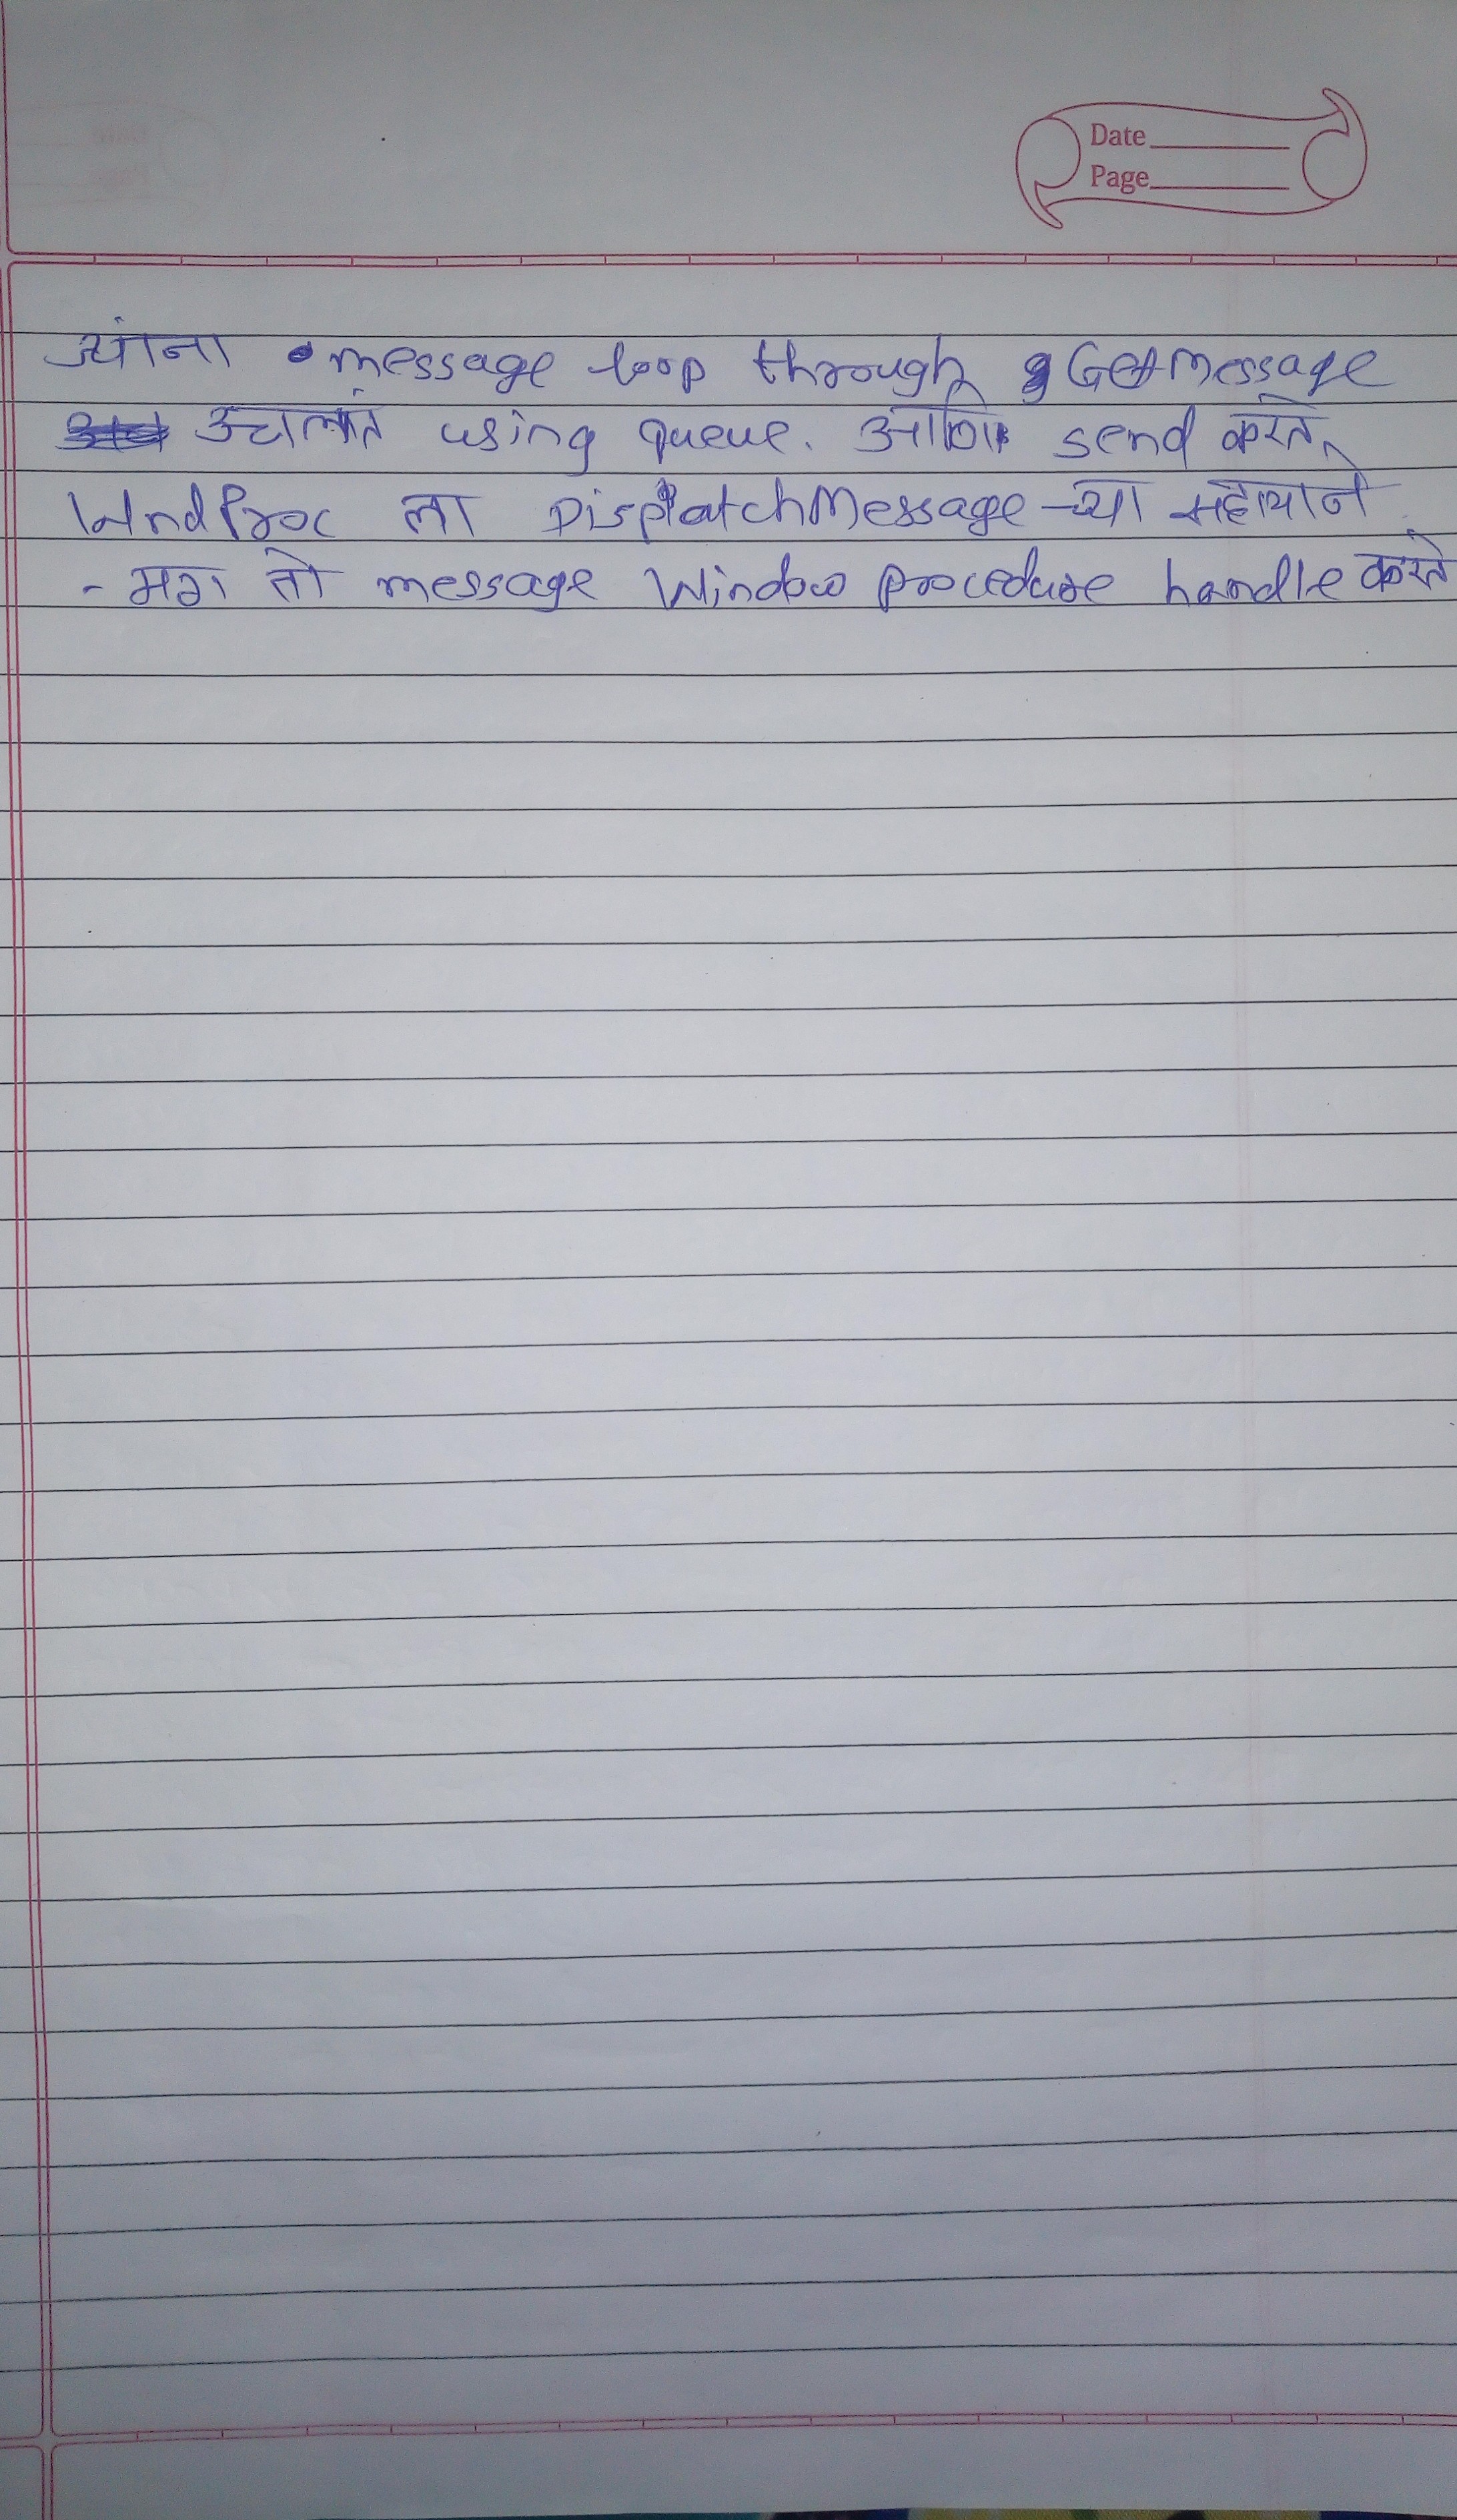 Date
Page
ज्यांना message loop through GetMessage
उचलतं using queue. आणि send करते,
WndProc ला DispatchMessage-च्या सहायाने
- मग तो message Window procedure handle करते